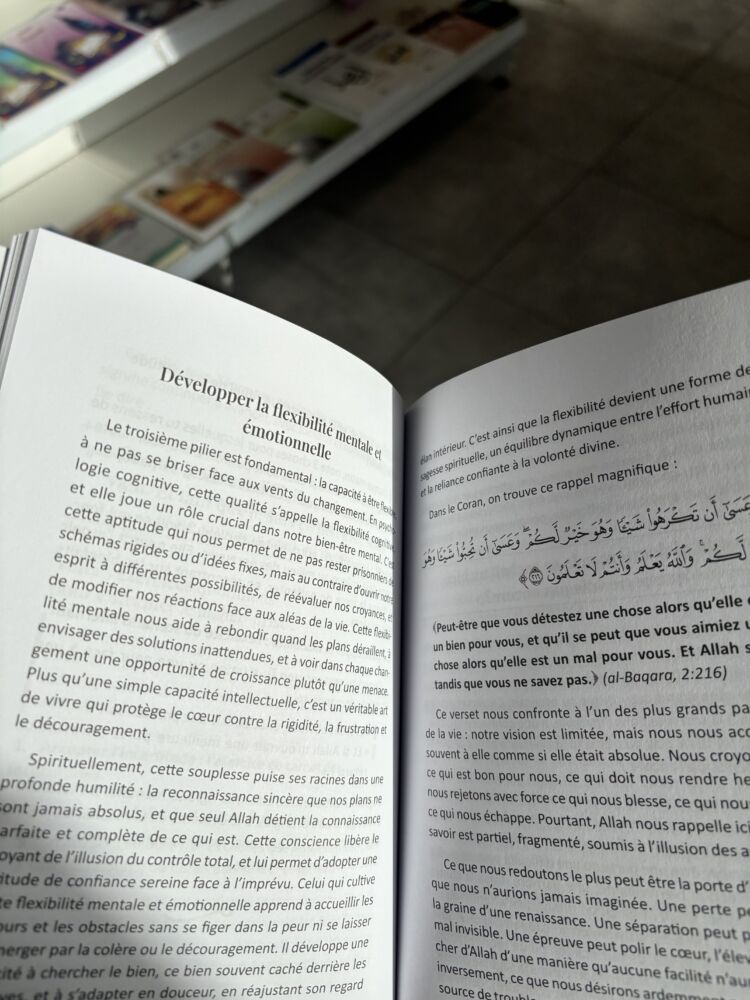 Développer la flexibilité mentale et
émotionnelle
Le troisième pilier est fondamental : la capacité à être flexible
à ne pas se briser face aux vents du changement. En psycho-
logie cognitive, cette qualité s'appelle la flexibilité cognitive
et elle joue un rôle crucial dans notre bien-être mental. C'est
cette aptitude qui nous permet de ne pas rester prisonniers de
schémas rigides ou d'idées fixes, mais au contraire d'ouvrir notre
esprit à différentes possibilités, de réévaluer nos croyances, et
de modifier nos réactions face aux aléas de la vie. Cette flexibi-
lité mentale nous aide à rebondir quand les plans déraillent, à
envisager des solutions inattendues, et à voir dans chaque chan-
gement une opportunité de croissance plutôt qu'une menace.
Plus qu'une simple capacité intellectuelle, c'est un véritable art
de vivre qui protège le cœur contre la rigidité, la frustration et
le découragement.
Spirituellement, cette souplesse puise ses racines dans une
profonde humilité : la reconnaissance sincère que nos plans ne
sont jamais absolus, et que seul Allah détient la connaissance
arfaite et complète de ce qui est. Cette conscience libère le
oyant de l'illusion du contrôle total, et lui permet d'adopter une
titude de confiance sereine face à l'imprévu. Celui qui cultive
te flexibilité mentale et émotionnelle apprend à accueillir les
ours et les obstacles sans se figer dans la peur ni se laisser
merger par la colère ou le découragement. Il développe une
cité à chercher le bien, ce bien souvent caché derrière les
es, et à s'adapter en douceur, en réajustant son regard
élan intérieur. C'est ainsi que la flexibilité devient une forme de
sagesse spirituelle, un équilibre dynamique entre l'effort humain
et la reliance confiante à la volonté divine.
Dans le Coran, on trouve ce rappel magnifique :
وَعَسَىٰٓ أَن تَكْرَهُوا۟ شَيْـًٔا وَهُوَ خَيْرٌ لَّكُمْ ۖ وَعَسَىٰٓ أَن تُحِبُّوا۟ شَيْـًٔا وَهُوَ
لَّكُمْ ۗ وَٱللَّهُ يَعْلَمُ وَأَنتُمْ لَا تَعْلَمُونَ ﴿٢١٦﴾
﴾Peut-être que vous détestez une chose alors qu'elle e
un bien pour vous, et qu'il se peut que vous aimiez u
chose alors qu'elle est un mal pour vous. Et Allah s
tandis que vous ne savez pas.﴿ (al-Baqara, 2:216)
Ce verset nous confronte à l'un des plus grands pa
de la vie : notre vision est limitée, mais nous nous acc
souvent à elle comme si elle était absolue. Nous croyo
ce qui est bon pour nous, ce qui doit nous rendre he
nous rejetons avec force ce qui nous blesse, ce qui nou
ce qui nous échappe. Pourtant, Allah nous rappelle ici
savoir est partiel, fragmenté, soumis à l'illusion des a
Ce que nous redoutons le plus peut être la porte d'
que nous n'aurions jamais imaginée. Une perte pe
la graine d'une renaissance. Une séparation peut p
mal invisible. Une épreuve peut polir le cœur, l'élev
cher d'Allah d'une manière qu'aucune facilité n'au
inversement, ce que nous désirons ardemment
source de trouble